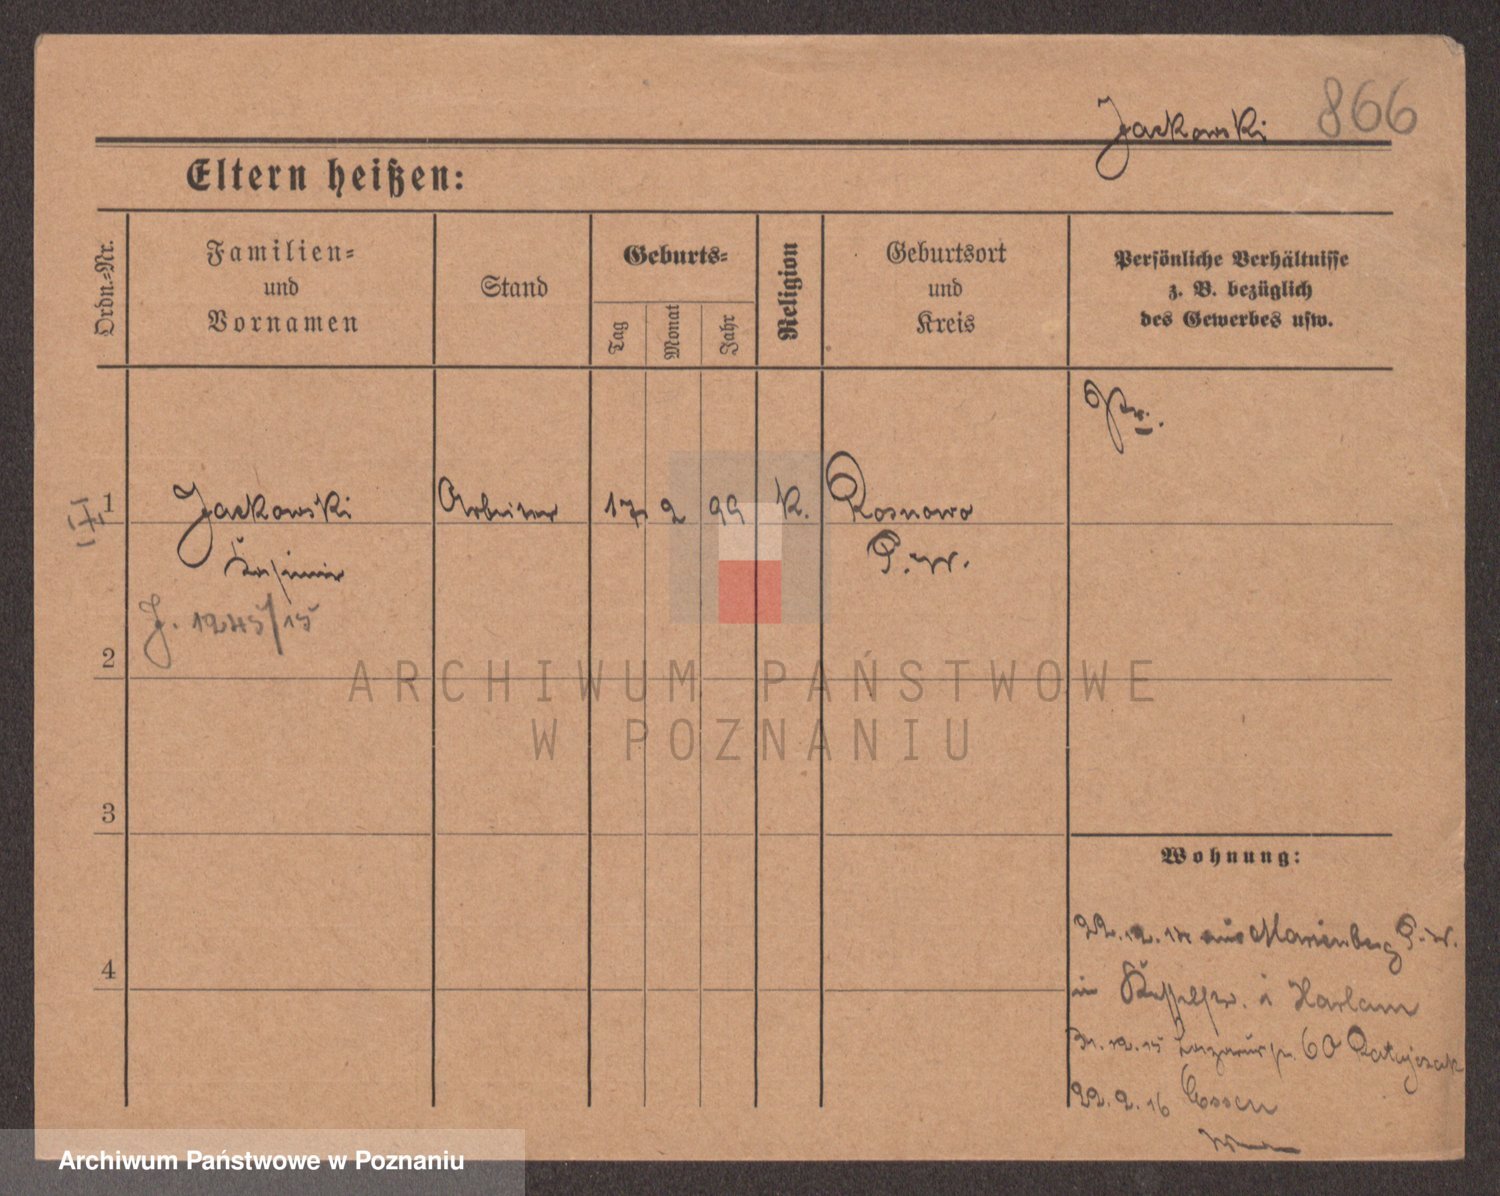 Jackowski 866
Eltern heißen:
Ordn.-Nr.
Familien-
und
Vornamen
Stand
Geburts-
Tag
Monat
Jahr
Religion
Geburtsort
und
Kreis
Persönliche Verhältnisse
z. B. bezüglich
des Gewerbes usw.
Pr.
1 Jackowski Arbeiter 17 2 99 K. Rosnowo
Kasimir P.W.
J. 1245/15
2
3
4
ARCHIWUM PAŃSTWOWE
W POZNANIU
Wohnung:
22.12.14 aus Marienberg P.W.
in b. Harlam
31.12.15 60 Ratajczak
22.2.16 Essen
Archiwum Państwowe w Poznaniu